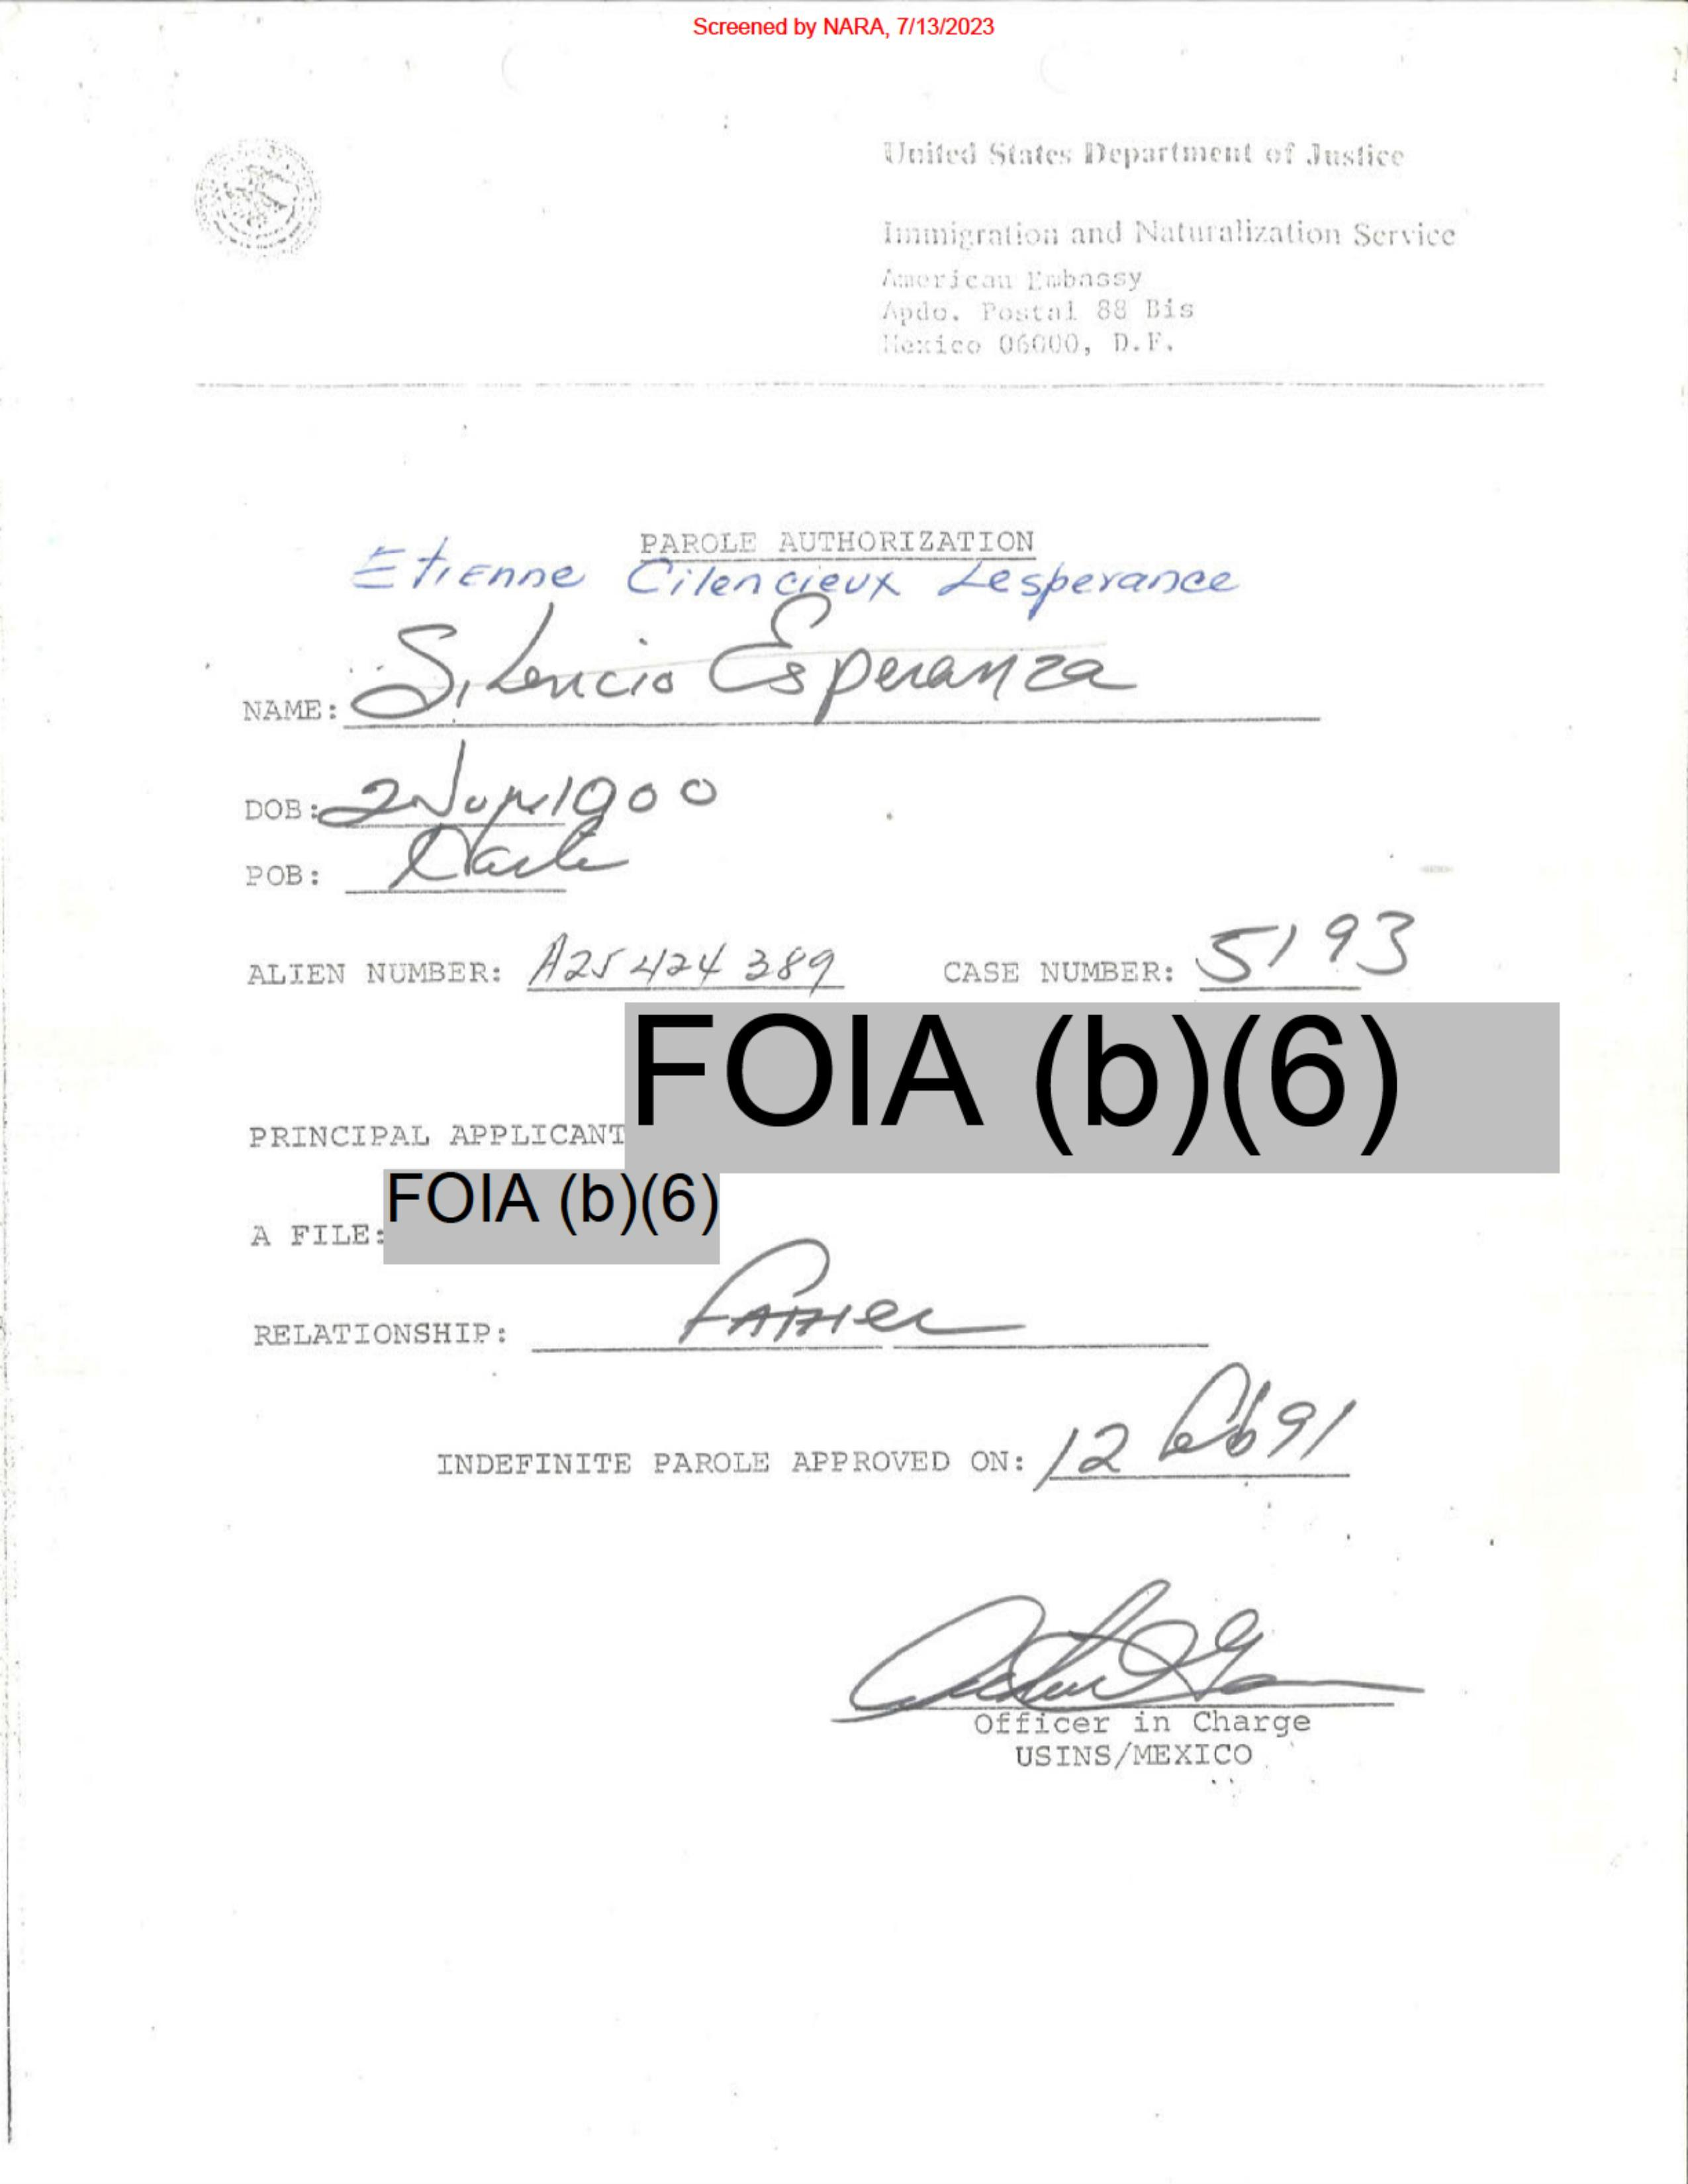 Screened by NARA, 7/13/2023
United States Department of Justice
Immigration and Naturalization Service
American Embassy
Apdo. Postal 88 Bis
Mexico 06000, D.F.
PAROLE AUTHORIZATION
Etienne Cilencieux Lesperance
NAME: Silencio Esperanza
DOB: 2 Jun 1900
POB:
ALIEN NUMBER: A25 424 389 CASE NUMBER: 5193
FOIA (b)(6)
PRINCIPAL APPLICANT
FOIA (b)(6)
A FILE:
RELATIONSHIP: FATHER
INDEFINITE PAROLE APPROVED ON: 12 Feb 91
Officer in Charge
USINS/MEXICO